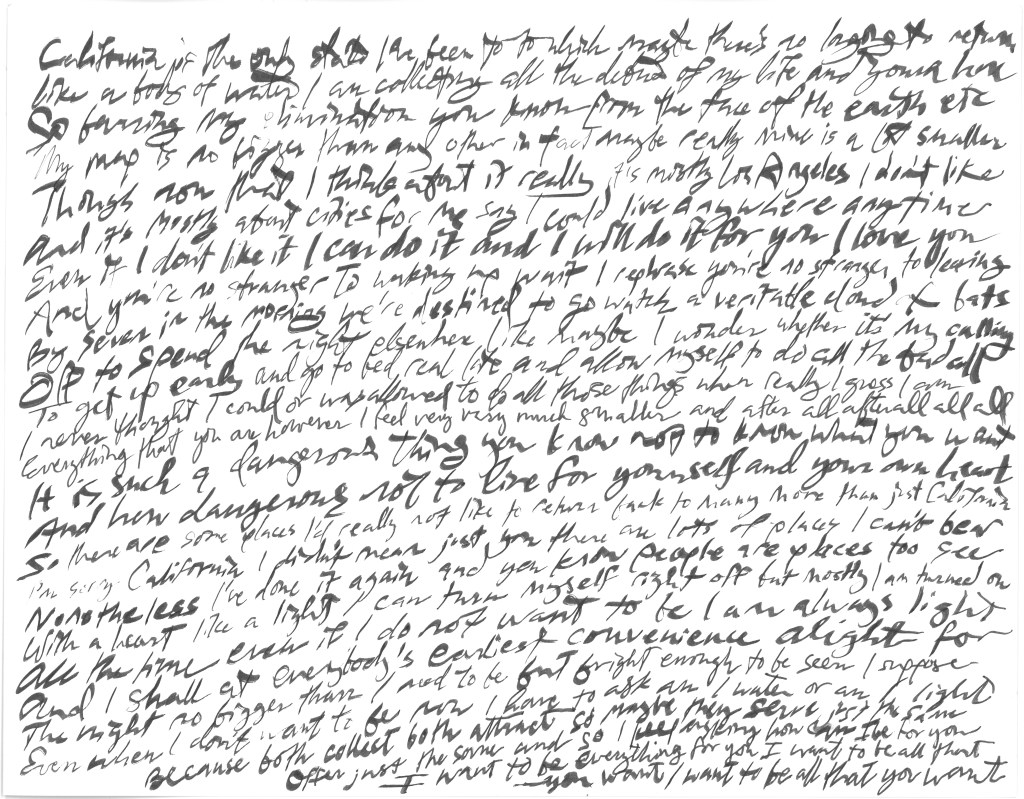 California is the only state I've been to to which maybe there's no logging to return
Like a body of water I am collecting all the debris of my life and gonna have
So fencing my elimination you know from the face of the earth etc
My map is no bigger than any other in fact maybe really mine is a bit smaller
Though now that I think about it really it's mostly Los Angeles I don't like
And it's mostly about cities for me say I could live anywhere anytime
Even if I don't like it I can do it and I will do it for you I love you
And you're no stranger to waking up wait I rephrase you're no stranger to leaving
By seven in the morning we're destined to go watch a veritable cloud of bats
Off to spend the night elsewhere like maybe I wonder whether it's my calling
To get up early and go to bed real late and allow myself to do all the bad all
I never thought I could or was allowed to do all those things when really I guess I am
Everything that you are however I feel very very much smaller and after all after all all all
It is such a dangerous thing you know not to know what you want
And how dangerous not to live for yourself and your own heart
So there are some places I'd really not like to return back to many more than just California
I'm sorry California I didn't mean just you there are lots of places I can't bear
Nonetheless I've done it again and you know people are places too see
With a heart like a light I can turn myself right off but mostly I am turned on
All the time even if I do not want to be I am always light
And I shall at everybody's earliest convenience alight for
The night no bigger than I need to be but bright enough to be seen I suppose
Even when I don't want to be now I have to ask am I water or am I light
Because both collect both attract so maybe they serve just the same
Offer just the same and so I keep asking how can I be for you
I want to be everything for you I want to be all that
you want I want to be all that you want